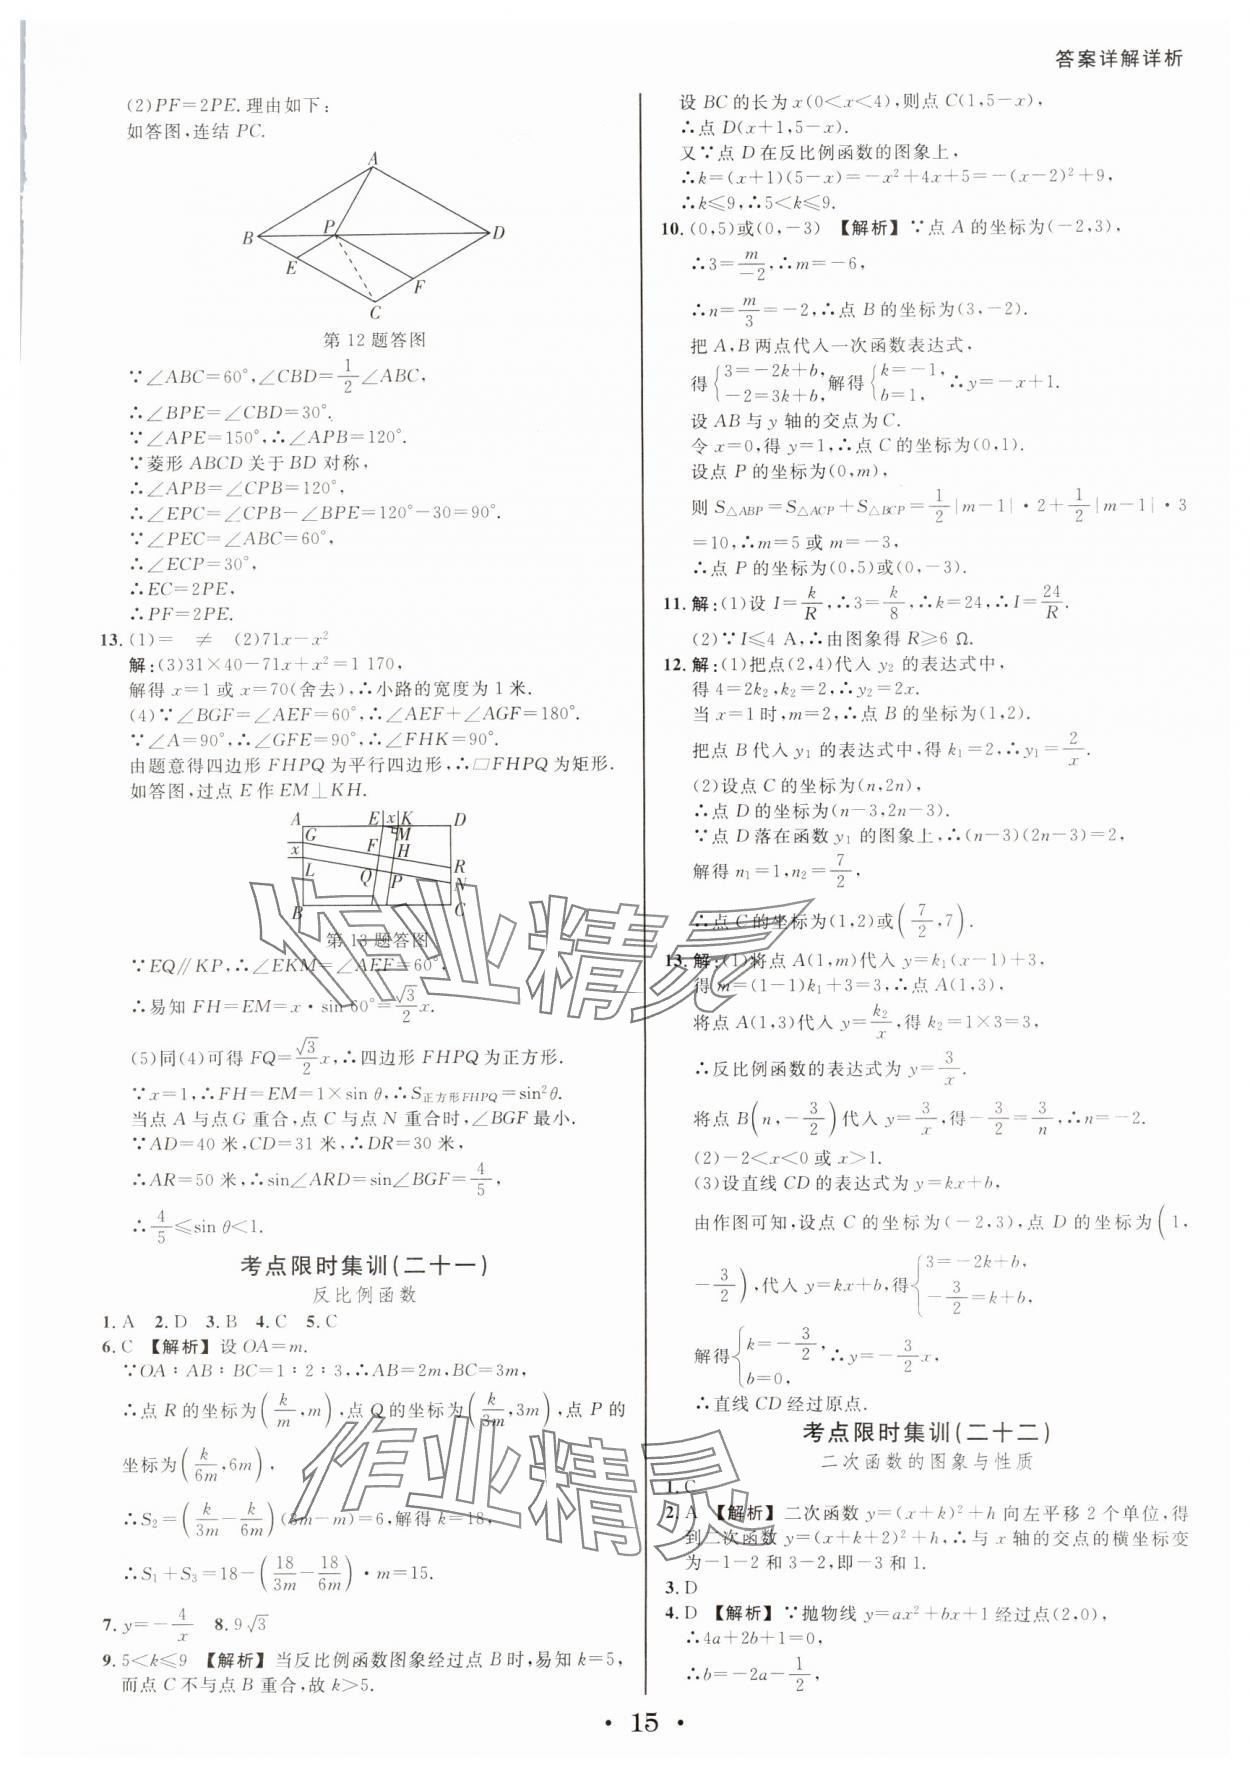 答案详解详析
(2)PF=2PE.理由如下:
如答图,连结 PC.
A
B
P
D
E
F
C
第 12 题答图
∵∠ABC=60°,∠CBD=1/2∠ABC,
∴∠BPE=∠CBD=30°.
∵∠APE=150°,∴∠APB=120°.
∵菱形 ABCD 关于 BD 对称,
∴∠APB=∠CPB=120°,
∴∠EPC=∠CPB-∠BPE=120°-30=90°.
∵∠PEC=∠ABC=60°,
∴∠ECP=30°,
∴EC=2PE,
∴PF=2PE.
13.(1)= ≠ (2)71x-x²
解:(3)31×40-71x+x²=1 170,
解得 x=1 或 x=70(舍去),∴小路的宽度为 1 米.
(4)∵∠BGF=∠AEF=60°,∴∠AEF+∠AGF=180°.
∵∠A=90°,∴∠GFE=90°,∴∠FHK=90°.
由题意得四边形 FHPQ 为平行四边形,∴□FHPQ 为矩形.
如答图,过点 E 作 EM⊥KH.
A E x K D
G F M
x H
L Q P R
N
B C
第 13 题答图
∵EQ∥KP,∴∠EKM=∠AEF=60°,
∴易知 FH=EM=x·sin 60°=√3/2 x.
(5)同(4)可得 FQ=√3/2 x,∴四边形 FHPQ 为正方形.
∵x=1,∴FH=EM=1×sin θ,∴S正方形FHPQ=sin²θ.
当点 A 与点 G 重合,点 C 与点 N 重合时,∠BGF 最小.
∵AD=40 米,CD=31 米,∴DR=30 米,
∴AR=50 米,∴sin∠ARD=sin∠BGF=4/5,
∴4/5≤sin θ<1.
考点限时集训(二十一)
反比例函数
1. A 2. D 3. B 4. C 5. C
6. C 【解析】设 OA=m.
∵OA∶AB∶BC=1∶2∶3,∴AB=2m,BC=3m,
∴点 R 的坐标为(k/m,m),点 Q 的坐标为(k/3m,3m),点 P 的
坐标为(k/6m,6m),
∴S₂=(k/3m-k/6m)(3m-m)=6,解得 k=18,
∴S₁+S₃=18-(18/3m-18/6m)·m=15.
7. y=-4/x 8. 9√3
9. 5<k≤9 【解析】当反比例函数图象经过点 B 时,易知 k=5,
而点 C 不与点 B 重合,故 k>5.
设 BC 的长为 x(0<x<4),则点 C(1,5-x),
∴点 D(x+1,5-x).
又∵点 D 在反比例函数的图象上,
∴k=(x+1)(5-x)=-x²+4x+5=-(x-2)²+9,
∴k≤9,∴5<k≤9.
10. (0,5)或(0,-3) 【解析】∵点 A 的坐标为(-2,3),
∴3=m/-2,∴m=-6,
∴n=m/3=-2,∴点 B 的坐标为(3,-2).
把 A,B 两点代入一次函数表达式,
得{3=-2k+b, -2=3k+b, 解得{k=-1, b=1, ∴y=-x+1.
设 AB 与 y 轴的交点为 C.
令 x=0,得 y=1,∴点 C 的坐标为(0,1).
设点 P 的坐标为(0,m),
则 S△ABP=S△ACP+S△BCP=1/2|m-1|·2+1/2|m-1|·3
=10,∴m=5 或 m=-3,
∴点 P 的坐标为(0,5)或(0,-3).
11. 解:(1)设 I=k/R,∴3=k/8,∴k=24,∴I=24/R.
(2)∵I≤4 A,∴由图象得 R≥6 Ω.
12. 解:(1)把点(2,4)代入 y₂ 的表达式中,
得 4=2k₂,k₂=2,∴y₂=2x.
当 x=1 时,m=2,∴点 B 的坐标为(1,2).
把点 B 代入 y₁ 的表达式中,得 k₁=2,∴y₁=2/x.
(2)设点 C 的坐标为(n,2n),
∴点 D 的坐标为(n-3,2n-3).
∵点 D 落在函数 y₁ 的图象上,∴(n-3)(2n-3)=2,
解得 n₁=1,n₂=7/2,
∴点 C 的坐标为(1,2)或(7/2,7).
13. 解:(1)将点 A(1,m)代入 y=k₁(x-1)+3,
得 m=(1-1)k₁+3=3,∴点 A(1,3),
将点 A(1,3)代入 y=k₂/x,得 k₂=1×3=3,
∴反比例函数的表达式为 y=3/x.
将点 B(n,-3/2)代入 y=3/x,得-3/2=3/n,∴n=-2.
(2)-2<x<0 或 x>1.
(3)设直线 CD 的表达式为 y=kx+b,
由作图可知,设点 C 的坐标为(-2,3),点 D 的坐标为(1,
-3/2),代入 y=kx+b,得{3=-2k+b, -3/2=k+b,
解得{k=-3/2, b=0, ∴y=-3/2x,
∴直线 CD 经过原点.
考点限时集训(二十二)
二次函数的图象与性质
1. C
2. A 【解析】二次函数 y=(x+k)²+h 向左平移 2 个单位,得
到二次函数 y=(x+k+2)²+h,∴与 x 轴的交点的横坐标变
为-1-2 和 3-2,即-3 和 1.
3. D
4. D 【解析】∵抛物线 y=ax²+bx+1 经过点(2,0),
∴4a+2b+1=0,
∴b=-2a-1/2,
· 15 ·
作业精灵
作业精灵